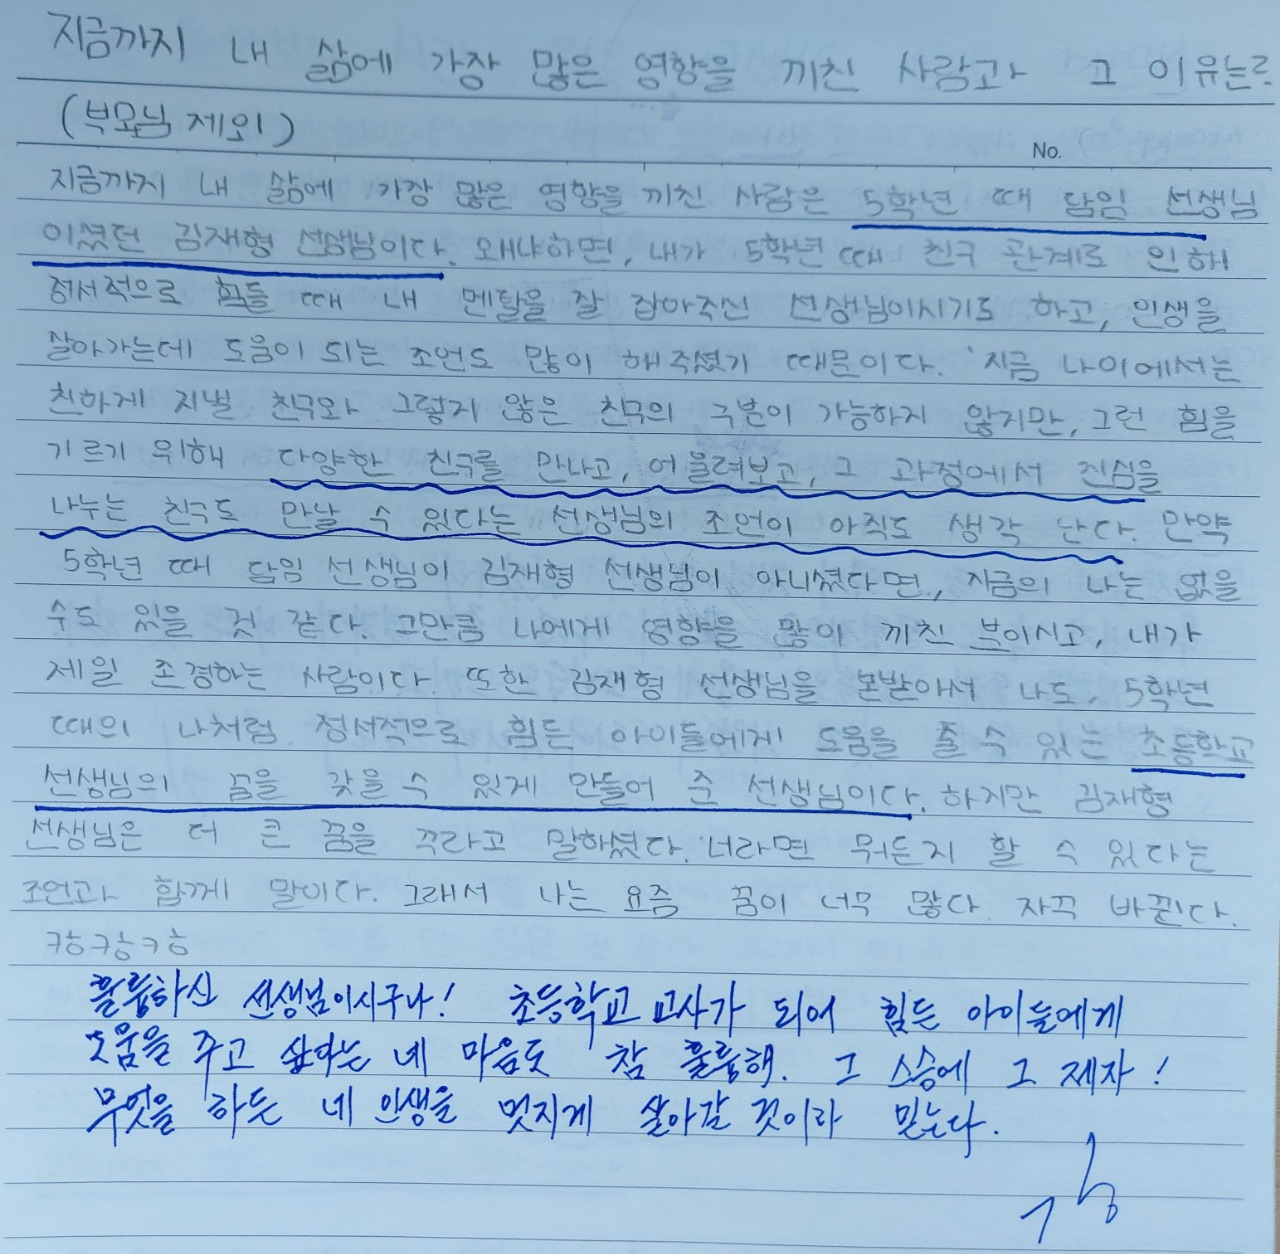 지금까지 내 삶에 가장 많은 영향을 끼친 사람과 그 이유는?
(부모님 제외)
No.
지금까지 내 삶에 가장 많은 영향을 끼친 사람은 5학년 때 담임 선생님
이셨던 김재형 선생님이다. 왜냐하면, 내가 5학년 때 친구 관계로 인해
정서적으로 힘들 때 내 멘탈을 잘 잡아주신 선생님이시기도 하고, 인생을
살아가는데 도움이 되는 조언도 많이 해주셨기 때문이다. 지금 나이에서는
친하게 지낼 친구와 그렇지 않은 친구의 구분이 가능하지 않지만, 그런 힘을
기르기 위해 다양한 친구를 만나고, 어울려보고, 그 과정에서 진심을
나누는 친구도 만날 수 있다는 선생님의 조언이 아직도 생각 난다. 만약
5학년 때 담임 선생님이 김재형 선생님이 아니셨다면, 지금의 나는 없을
수도 있을 것 같다. 그만큼 나에게 영향을 많이 끼친 분이시고, 내가
제일 존경하는 사람이다. 또한 김재형 선생님을 본받아서 나도, 5학년
때의 나처럼 정서적으로 힘든 아이들에게 도움을 줄 수 있는 초등학교
선생님의 꿈을 갖을 수 있게 만들어 준 선생님이다. 하지만 김재형
선생님은 더 큰 꿈을 꾸라고 말하셨다. 너라면 뭐든지 할 수 있다는
조언과 함께 말이다. 그래서 나는 요즘 꿈이 너무 많다. 자꾹 바뀐다.
캉캉캉
훌륭하신 선생님이시구나! 초등학교 교사가 되어 힘든 아이들에게
도움을 주고 싶다는 네 마음도 참 훌륭해. 그 스승에 그 제자!
무엇을 하든 네 인생을 멋지게 살아갈 것이라 믿는다.